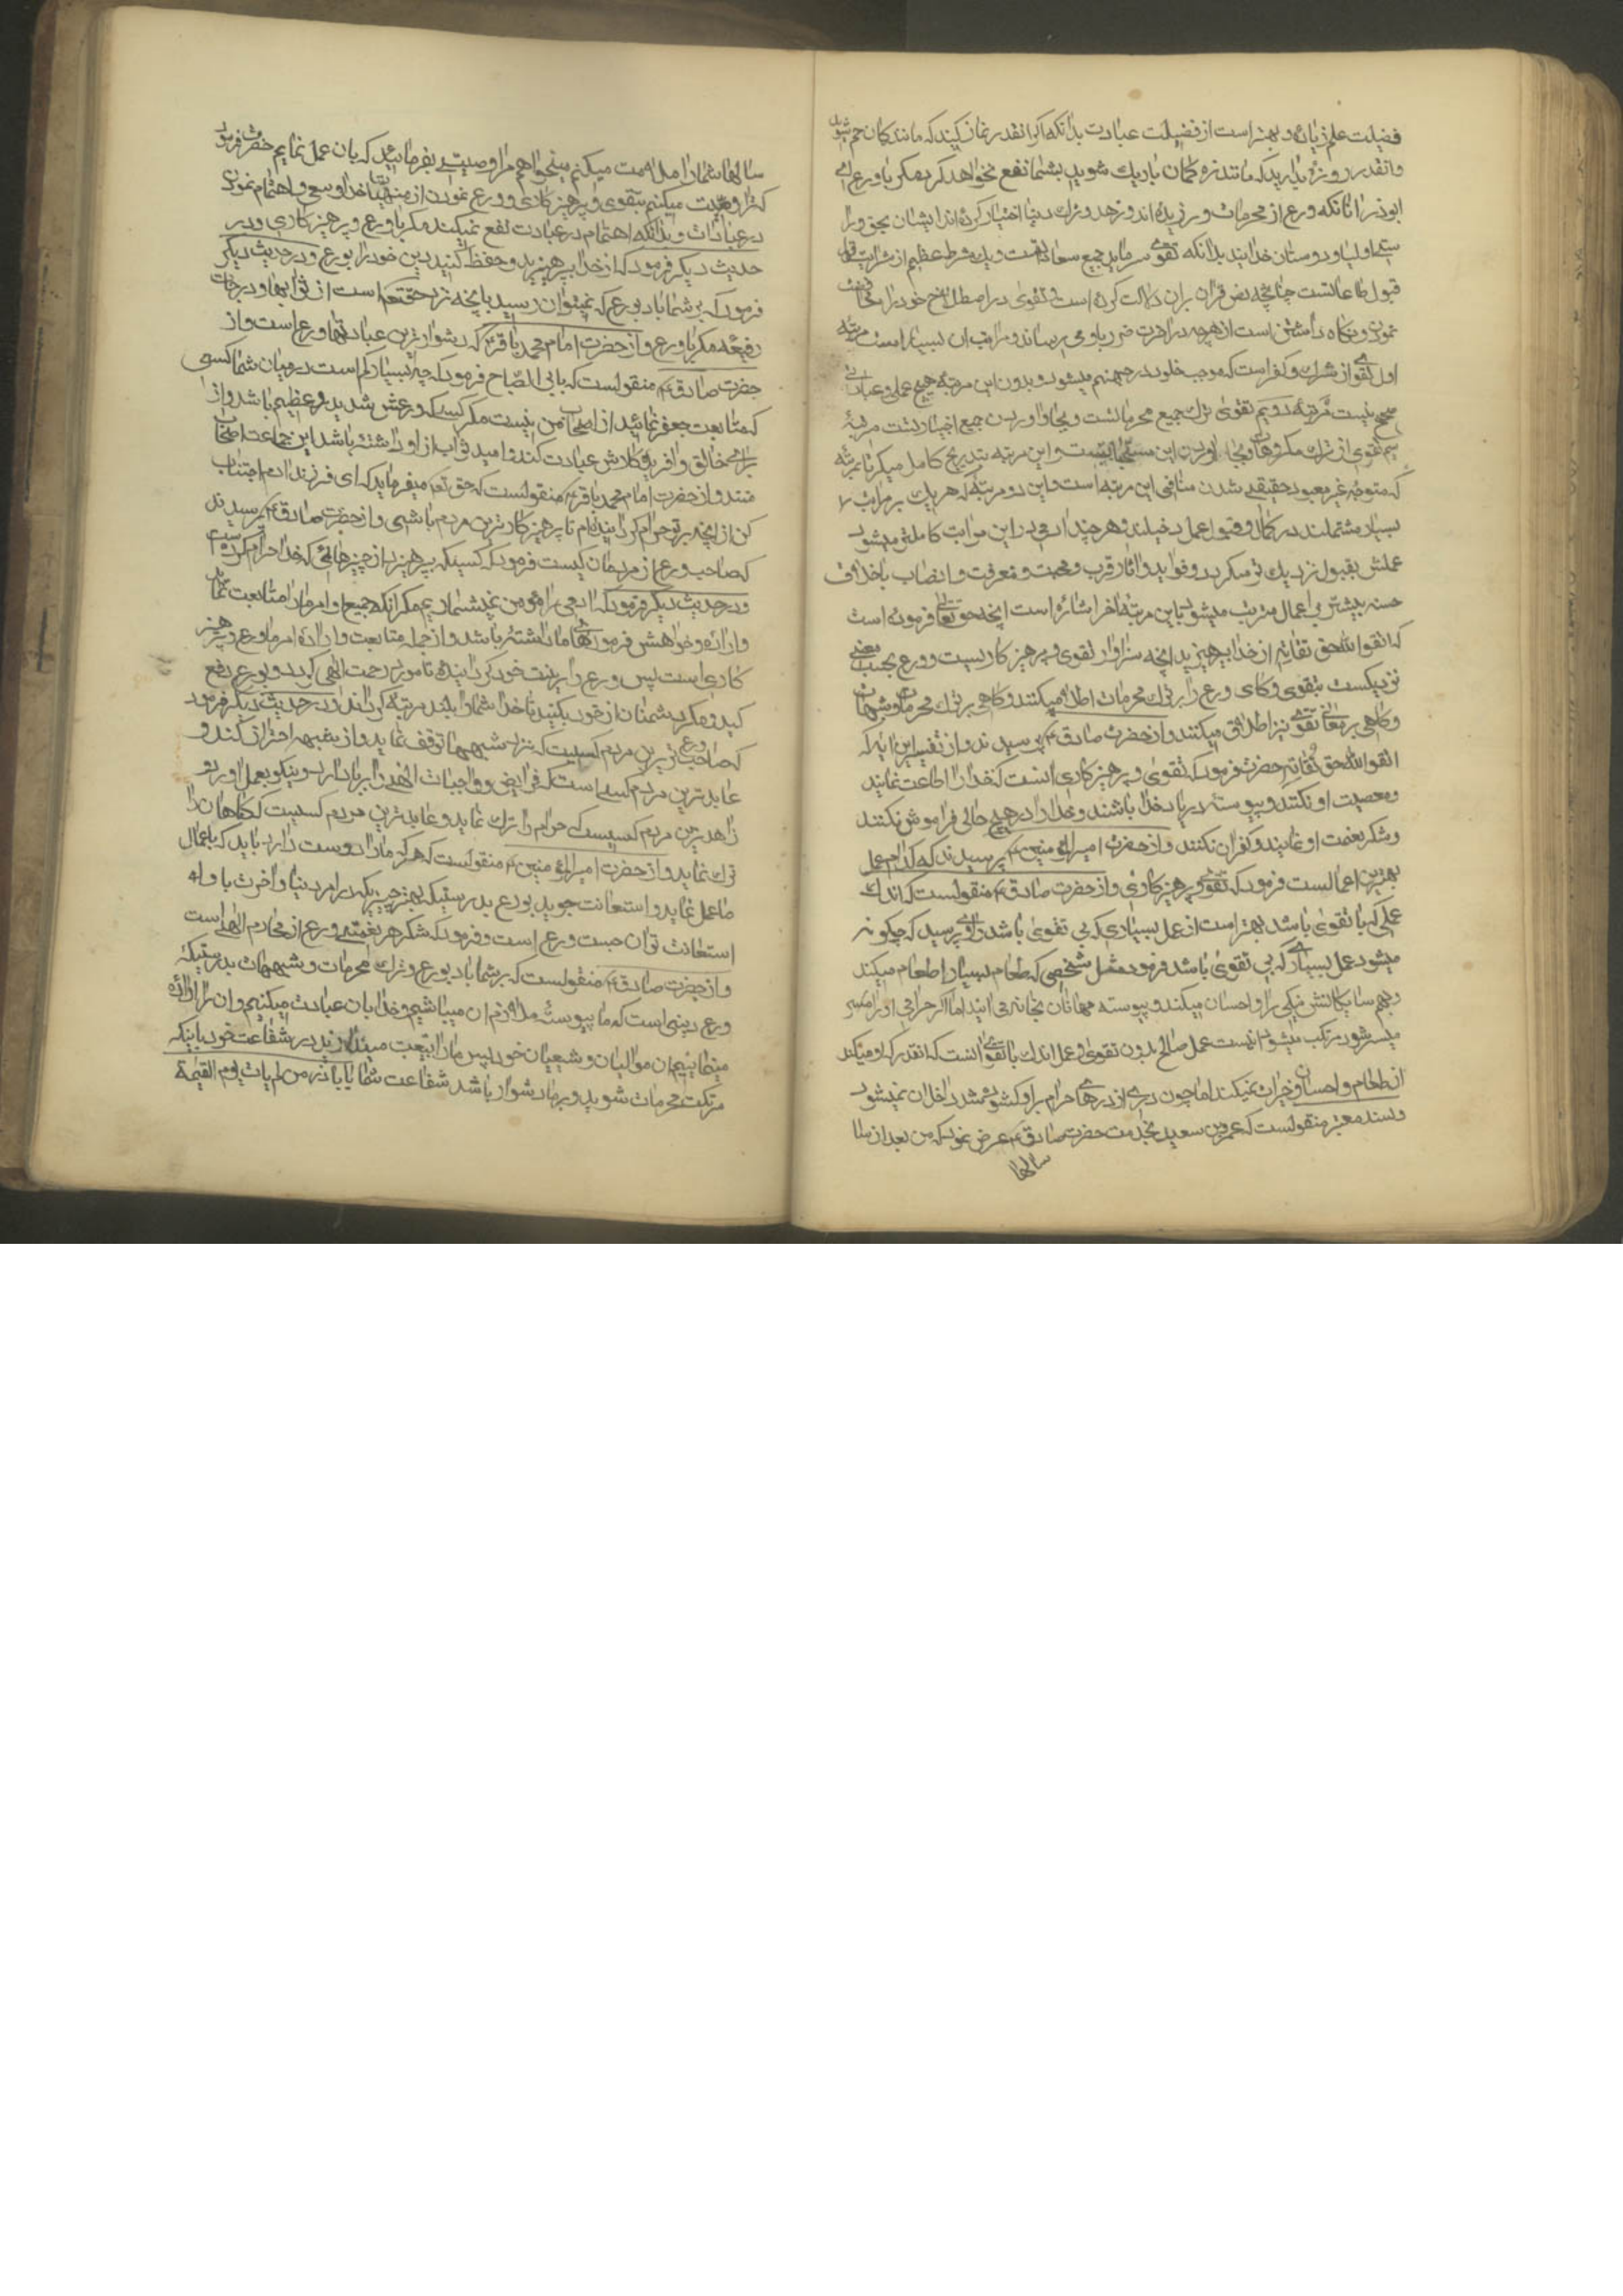 فضیلت علم زیاده و بهتر است از فضیلت عبادت بدانکه اگر انقدر نماز کنید که مانند کمان خم شوید
وانقدر روزه بدارید که مانند زه کمان باریک شوید بشما نفع نخواهد کرد مکر باورع ای
ابوذر بدانکه ورع از محرمات ورزیده اند و زهد و ترک دنیا اختیار کرده اند ایشان بحق و را
ستی اولیا و دوستان خدایند بدانکه تقوی سرمایه جمیع سعادتهاست و یک شرط عظیم از شرایط
قبول طاعاتست چنانچه نص قران بران دلالت کرده است و تقوی در اصطلاح خود را محافظت
نمودن و نکاه داشتن است از هرچه در اخرت ضرر باو می رساند و مراتب ان بسیار است مرتبه
اول تقوی از شرک و کفر است که موجب خلود در جهنم میشود و بدون این مرتبه هیچ عملی و عبادتی
صحیح نیست مرتبه دویم تقوی ترک جمیع محرماتست و بجا اوردن جمیع مرتبه
سیم تقوی از ترک مکروهات و بجا اوردن این مستحباتست و این مرتبه بتدریج کامل میکرد تا بمرتبه
که متوجه غیر معبود حقیقی شدن منافی این مرتبه است و این دو مرتبه که هر یک بر مراتب
بسیار مشتملند در کمال و قبول عمل دخیلند و هر چند ادمی در این مراتب کاملتر میشود
عملش بقبول نزدیک تر میکردد و فواید و اثار قرب و محبت و معرفت و اتصاف باخلاق
حسنه بیشتر بر اعمال مترتب میشود باین مرتبه اخر اشاره است انچه حق تعالی فرموده است
که اتقوا الله حق تقاته از خدا بپرهیزید انچه سزاوار تقوی و پرهیز کاریست و ورع بحسب معنی
نزدیکست بتقوی و کای ورع را بر ترک محرمات اطلاق میکنند و کاهی بر ترک محرمات و شبهات
و کاهی بر معانی تقوی نیز اطلاق میکنند و از حضرت صادق ع پرسیدند از تفسیر این ایه که
اتقوا الله حق تقاته حضرت فرمود که تقوی و پرهیز کاری انست که خدا را اطاعت نمایند
و معصیت او نکنند و پیوسته در یاد خدا باشند و خدا را در هیچ حالی فراموش نکنند
و شکر نعمت او نمایند و کفران نکنند و از حضرت امیر المؤمنین ع پرسیدند که کدام عمل
بهترین اعمالست فرمود که تقوی و پرهیز کاری و از حضرت صادق ع منقولست که اندک
عملی که با تقوی باشد بهتر است از عمل بسیاری که بی تقوی باشد راوی پرسید که چکونه
میشود عمل بسیاری که بی تقوی باشد فرمود مثل شخصی که طعام بسیار اطعام میکند
و بهمسایکانش نیکی را و احسان میکند و پیوسته مهمانان بخانه می ایند اما اکر حرامی او را میسر
میسر شود مرتکب میشود اینست عمل صالح بدون تقوی و عمل اندک با تقوی انست که انقدر که او میکند
از طعام و احسان و خیرات نمیکند اما چون دری از درهای حرام بر او کشوده شد داخل ان نمیشود
و بسند معتبر منقولست که عمرو بن سعید بخدمت حضرت صادق ع عرض نمود که من بعد از سا
سالها
سالها شما را ملازمت میکنم میخواهم مرا وصیتی بفرمائید که بان عمل نمایم حضرت فرمود
که ترا وصیت میکنم بتقوی و پرهیز کاری و ورع نمودن از منهیات خدا و سعی و اهتمام نمودن
در عبادات و بدانکه اهتمام در عبادت نفع نمیکند مکر باورع و پرهیز کاری و در
حدیث دیکر فرمود که از خدا بپرهیزید و حفظ کنید دین خود را بورع و در حدیث دیکر
فرمود که بر شما باد بورع که نمیتوان رسید بانچه نزد حقتعالی است از ثوابها و درجات
رفیعه مکر باورع و از حضرت امام محمد باقر ع که دشوار ترین عبادتها ورع است و از
حضرت صادق ع منقولست که بابی الصباح فرمود که چه بسیار کم است در میان شما کسی
که متابعت جعفر نمائید از اصحاب من نیست مکر کسیکه ورعش شدید و عظیم باشد و از
برای خالق و افریدکارش عبادت کند و امید ثواب از او داشته باشد این جماعت اصحاب
منند و از حضرت امام محمد باقر ع منقولست که حق تعالی میفرماید که ای فرزند ادم اجتناب
کن از انچه بر تو حرام کردانیده ام تا پرهیز کار ترین مردم باشی و از حضرت صادق ع پرسیدند
که صاحب ورع از مردمان کیست فرمود که کسیکه بپرهیزد از چیزهائی که خدا حرام کرده است
و در حدیث دیکر فرمود که ادمی را مؤمن نمیشماریم مکر انکه جمیع اوامر ما را متابعت نماید
و اراده و خواهش فرمودهای ما داشته باشد و از جمله متابعت و اراده امر ما ورع و پرهیز
کاری است پس ورع را زینت خود کردانید تا مورد رحمت الهی کردید و بورع دفع
کید و مکر دشمنان از خود بکنید تا خدا شما را بلند مرتبه کرداند و در حدیث دیکر فرمود
که صاحب ورع ترین مردم کسیست که نزد شبهها توقف نماید و از شبهه احتراز کند و
عابد ترین مردم کسی است که فرایض و واجبات الهی را برپا دارد
زاهد ترین مردم کسیست که حرام را ترک نماید و عابد ترین مردم کسیست که کناهان را
ترک نماید و از حضرت امیر المؤمنین ع منقولست که هر که ما را دوست دارد باید که باعمال
ما عمل نماید و استعانت جوید بورع بدرستیکه بهتر چیزیکه در امر دنیا و اخرت باو
استعانت توان جست ورع است و فرمود که شکر هر نعمتی ورع از محارم الهی است
و از حضرت صادق ع منقولست که بر شما باد بورع و ترک محرمات و شبهات بدرستیکه
ورع دینی است که ما پیوسته ملازم ان میباشیم و خدا را بان عبادت میکنیم و ان را اراده
مینمائیم از موالیان و شیعیان خود پس ما را بتعب میندازید در شفاعت خود باینکه
مرتکب محرمات شوید و بر ما دشوار باشد شفاعت شما یا اباذر من لم یات یوم القیمة